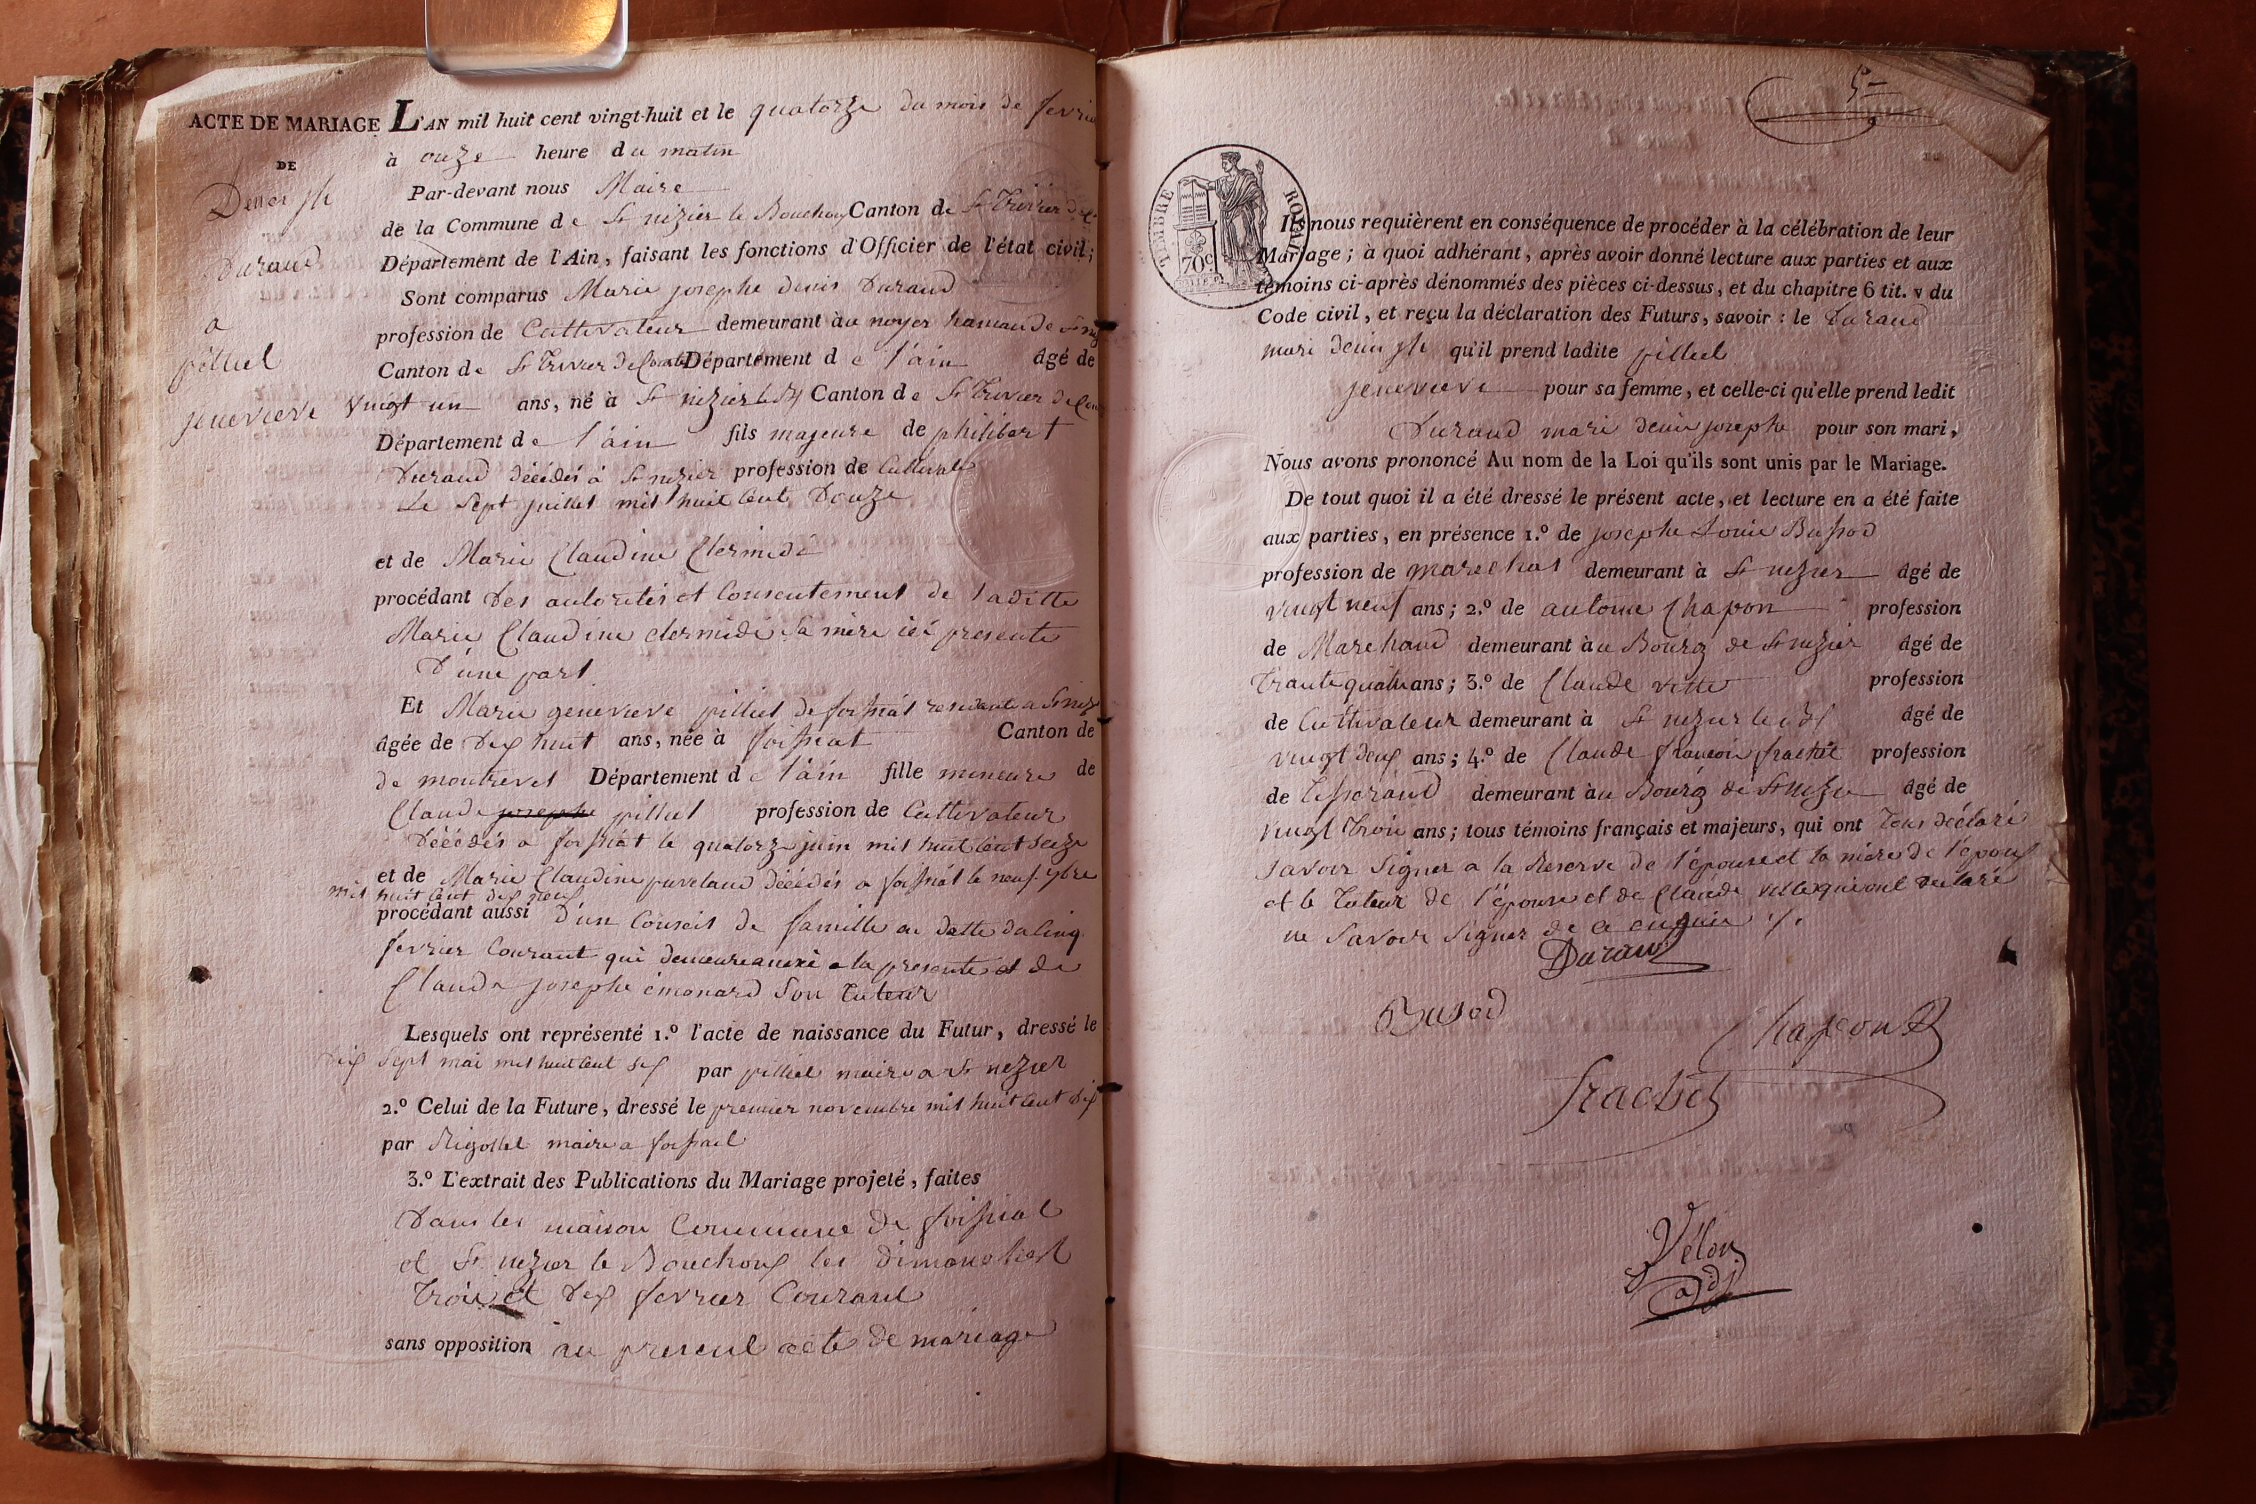 ACTE DE MARIAGE
DE
Denis jh
Durand
a
pilliel
jenevieve
L'AN mil huit cent vingt-huit et le quatorze du mois de fevrier
à onze heure du matin
Par-devant nous Maire
de la Commune de St nizier le Bouchoux Canton de St Trivier de
Département de l'Ain, faisant les fonctions d'Officier de l'état civil;
Sont comparus Marie josephe denis Durand
profession de Cultivateur demeurant au noyer hamau de St niz
Canton de St Trivier de Court Département de l'ain âgé de
vingt un ans, né à St nizier le Canton de St Trivier de Cour
Département de l'ain fils majeure de philibert
Durand décédés á St nizier profession de Cultivate
Le Sept juillet mil huit Cent Douze
et de Marie Claudine Clermidi
procédant Des autorités et Consentement de laditte
Marie Claudine clermidi Sa mère ici presente
D'une part
Et Marie genevieve pilliel de foissiat residante a St niz
âgée de Dix huit ans, née à foissiat Canton de
de montrevel Département de l'ain fille mineure de
Claude josephe pilliel profession de Cultivateur
Décédés a foissiat le quatorze juin mil huit Cent Seize
et de Marie Claudine puveland décédés a foissiat le neuf 9bre
mil huit Cent dix neuf
procédant aussi D'un Conseil de famille en datte du Cinq
fevrier Courant qui demeure anexé a la presente et de
Claude josephe émonard Son Tuteur
Lesquels ont représenté 1.º l'acte de naissance du Futur, dressé le
Dix Sept mai mil huit Cent Six par pilliel maire a St nezier
2.º Celui de la Future, dressé le premier novembre mil huit Cent Dix
par Rigollet maire a foissiat
3.º L'extrait des Publications du Mariage projeté, faites
Dans les maison Commune de foissiat
et St nezier le Bouchoux les dimanches
Trois et Dix fevrier Courant
sans opposition au present acte de mariage
TIMBRE ROYAL
70c
Ils nous requièrent en conséquence de procéder à la célébration de leur
Mariage; à quoi adhérant, après avoir donné lecture aux parties et aux
témoins ci-après dénommés des pièces ci-dessus, et du chapitre 6 tit. v du
Code civil, et reçu la déclaration des Futurs, savoir : le Durand
mari denis jh qu'il prend ladite pilliel
jenevieve pour sa femme, et celle-ci qu'elle prend ledit
Durand mari denis josephe pour son mari,
Nous avons prononcé Au nom de la Loi qu'ils sont unis par le Mariage.
De tout quoi il a été dressé le présent acte, et lecture en a été faite
aux parties, en présence 1.º de josephe Louis Bussod
profession de marechal demeurant à St nezier âgé de
vingt neuf ans; 2.º de antoine Chapon profession
de Marchand demeurant au Bourg de St nizier âgé de
Trante quatre ans; 3.º de Claude vette profession
de Cultivateur demeurant à St nezier le âgé de
vingt deux ans; 4.º de Claude françois frachet profession
de Tisserand demeurant au Bourg de St nizier âgé de
vingt trois ans; tous témoins français et majeurs, qui ont Tous déclaré
Savoir Signer a la Reserve de l'épouse et la mère de l'epoux
et le Tuteur de l'épouse et de Claude vette qui ont declaré
ne Savoir Signer de ce enquis ./.
Durand
Busod
Chapon
frachet
Vélon
adj